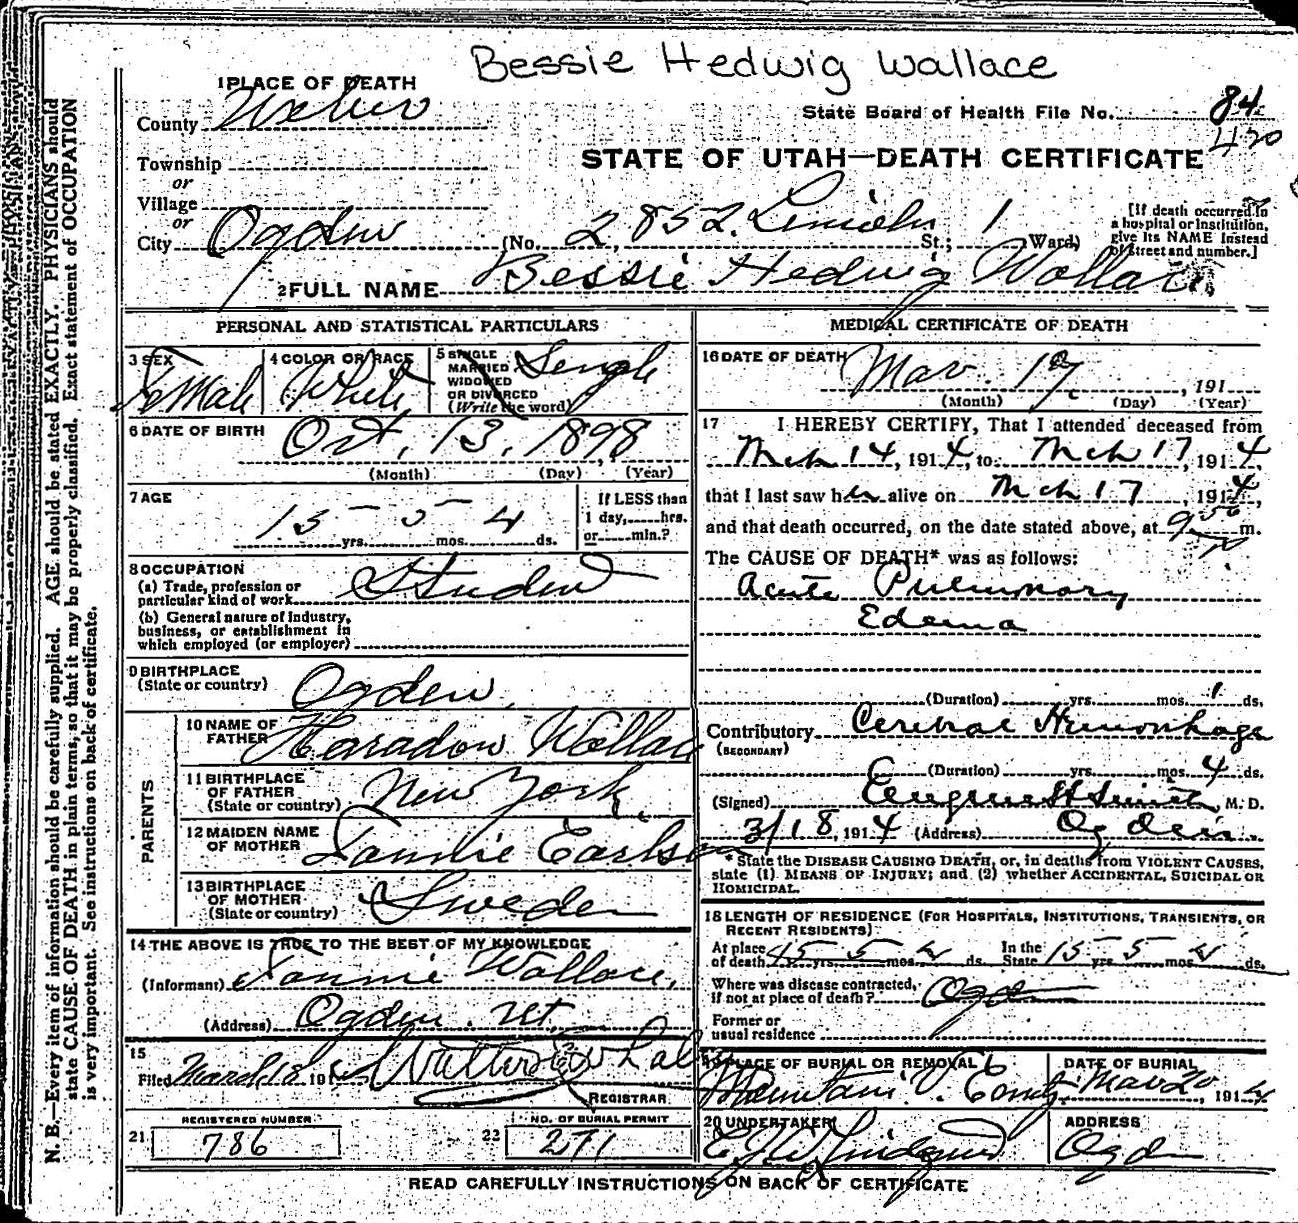 Bessie Hedwig Wallace
1 PLACE OF DEATH
County Weber
State Board of Health File No. 84
420
Township
or
Village
or
City Ogden
STATE OF UTAH—DEATH CERTIFICATE
(No. 2852 Lincoln St.; 1 Ward)
[If death occurred in
a hospital or institution,
give its NAME instead
of street and number.]
2 FULL NAME Bessie Hedwig Wallace
PERSONAL AND STATISTICAL PARTICULARS
3 SEX Female
4 COLOR OR RACE White
5 SINGLE
MARRIED
WIDOWED
OR DIVORCED
(Write the word)
Single
6 DATE OF BIRTH
Oct. 13, 1898
(Month) (Day) (Year)
7 AGE
15 yrs. 5 mos. 4 ds.
If LESS than
1 day, hrs.
or min.?
8 OCCUPATION
(a) Trade, profession or
particular kind of work Student
(b) General nature of Industry,
business, or establishment in
which employed (or employer)
9 BIRTHPLACE
(State or country) Ogden
PARENTS
10 NAME OF
FATHER Haradon Wallace
11 BIRTHPLACE
OF FATHER
(State or country) New York
12 MAIDEN NAME
OF MOTHER Earlson
13 BIRTHPLACE
OF MOTHER
(State or country) Sweden
14 THE ABOVE IS TRUE TO THE BEST OF MY KNOWLEDGE
(Informant) Wallace,
(Address) Ogden. Ut.
15
Filed March 18 191
REGISTRAR
REGISTERED NUMBER
21 786
NO. OF BURIAL PERMIT
22 271
MEDICAL CERTIFICATE OF DEATH
16 DATE OF DEATH
Mar. 17, 191
(Month) (Day) (Year)
17 I HEREBY CERTIFY, That I attended deceased from
Mch 14, 1914, to Mch 17, 1914,
that I last saw her alive on Mch 17, 1914,
and that death occurred, on the date stated above, at 9 50 P m.
The CAUSE OF DEATH* was as follows:
Acute Pulmonary
Edema
(Duration) yrs. mos. 1 ds.
Contributory Cerebral Hemorrhage
(SECONDARY)
(Duration) yrs. mos. 4 ds.
(Signed) Eugene H Smith, M. D.
3/18, 1914 (Address) Ogden.
* State the DISEASE CAUSING DEATH, or, in deaths from VIOLENT CAUSES,
state (1) MEANS OF INJURY; and (2) whether ACCIDENTAL, SUICIDAL OR
HOMICIDAL.
18 LENGTH OF RESIDENCE (FOR HOSPITALS, INSTITUTIONS, TRANSIENTS, OR
RECENT RESIDENTS)
At place
of death 15 yrs. 5 mos. 4 ds.
In the
State 15 yrs. 5 mos. 4 ds.
Where was disease contracted,
if not at place of death? Ogden
Former or
usual residence
19 PLACE OF BURIAL OR REMOVAL
Mountain V. Cemty
DATE OF BURIAL
Mar 20, 1914
20 UNDERTAKER
Lindquist
ADDRESS
Ogden
READ CAREFULLY INSTRUCTIONS ON BACK OF CERTIFICATE
N. B.—Every item of information should be carefully supplied. AGE should be stated EXACTLY. PHYSICIANS should
state CAUSE OF DEATH in plain terms, so that it may be properly classified. Exact statement of OCCUPATION
is very important. See instructions on back of certificate.